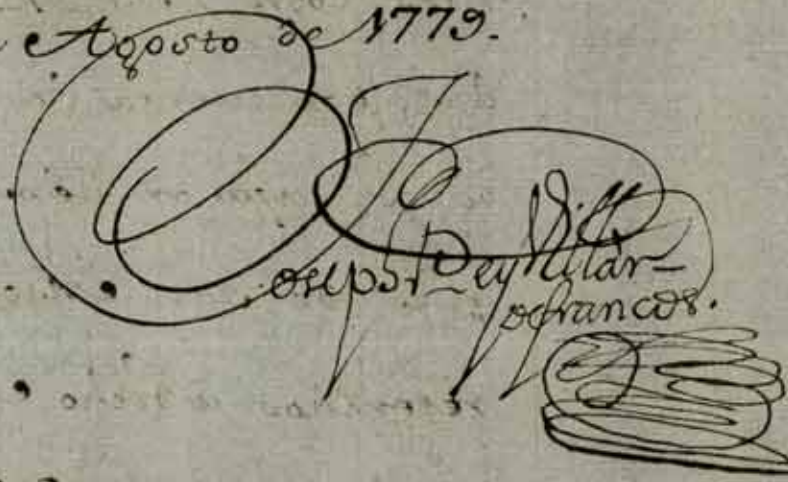 Agosto de 1779.
Joseph Rey Villar-
defrancos.